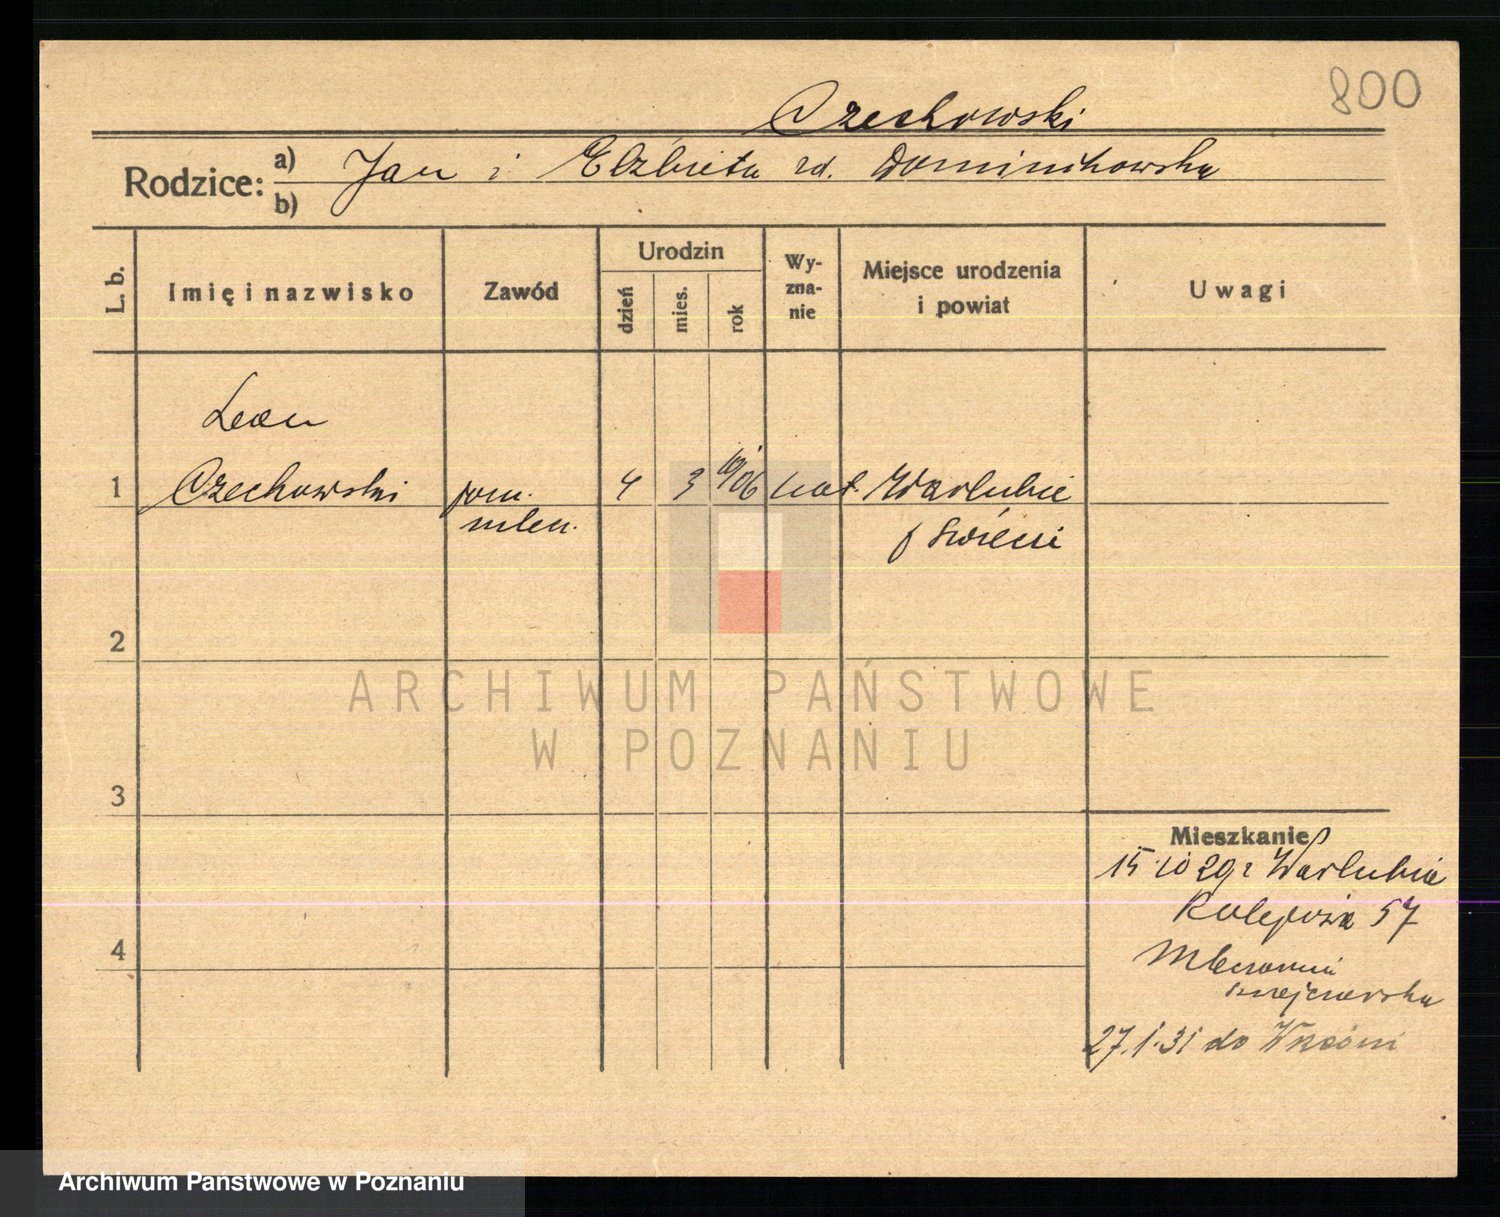 800
Czechowski
Rodzice: a) Jan i Elżbieta zd. Dominikowska
b)
L. b.
Imię i nazwisko
Zawód
Urodzin
dzień
mies.
rok
Wy-
zna-
nie
Miejsce urodzenia
i powiat
Uwagi
Leon
1 Czechowski pom. 4 3 1906 kat. Warlubie
mlecz. p Świecie
2
ARCHIWUM PAŃSTWOWE
W POZNANIU
3
Mieszkanie
15.10 29 z Warlubia
Kolejowa 57
Mleczarnia
27.1.31 do
4
Archiwum Państwowe w Poznaniu